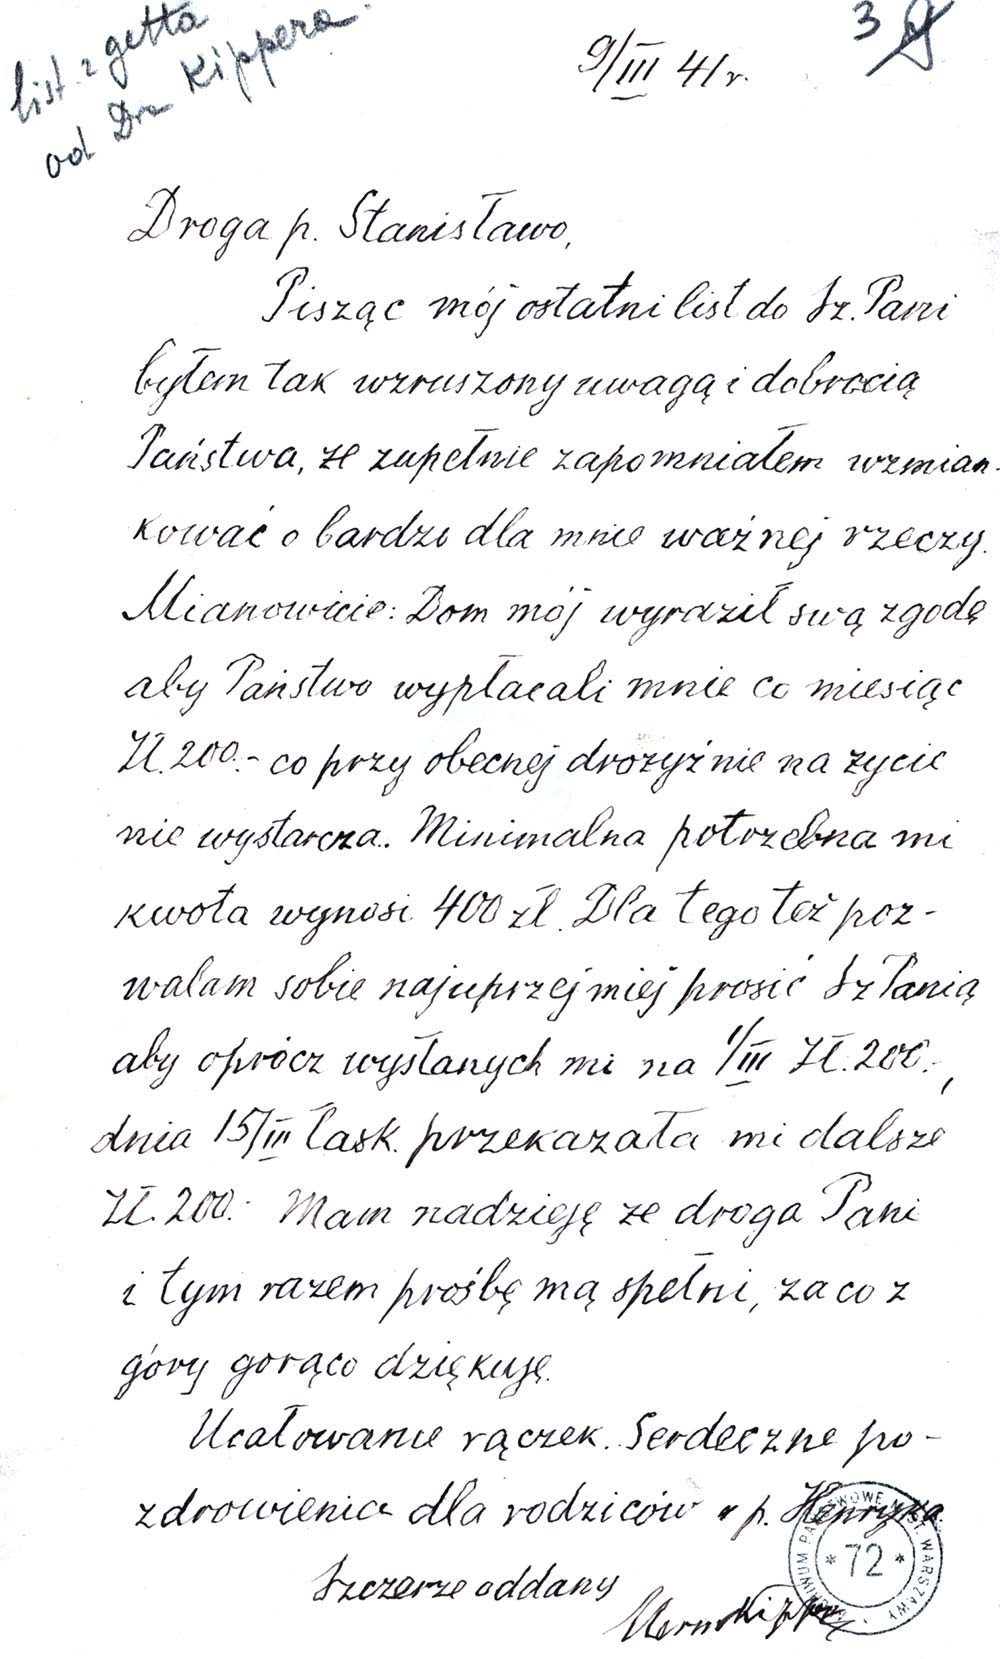 list z getta
od Dra Kippera.
3
9/III 41 r.
Droga p. Stanisławo,
Pisząc mój ostatni list do Sz. Pani
byłem tak wzruszony uwagą i dobrocią
Państwa, ze zupełnie zapomniałem wzmian-
kować o bardzo dla mnie ważnej rzeczy.
Mianowicie: Dom mój wyraził swą zgodę
aby Państwo wypłacali mnie co miesiąc
Zł. 200.- co przy obecnej drożyźnie na zycie
nie wystarcza. Minimalna potrzebna mi
kwota wynosi 400 zł. Dla tego też poz-
walam sobie najuprzejmiej prosić Sz Panią
aby oprócz wysłanych mi na 1/III Zł. 200.-,
dnia 15/III łask. przekazała mi dalsze
Zł. 200.- Mam nadzieję ze droga Pani
i tym razem prośbę mą spełni, za co z
góry gorąco dziękuję.
Ucałowanie rączek. Serdeczne po-
zdrowienia dla rodziców p. Henryka
Szczerze oddany
Kipper
ARCHIWUM PAŃSTWOWE M. ST. WARSZAWY
* 72 *